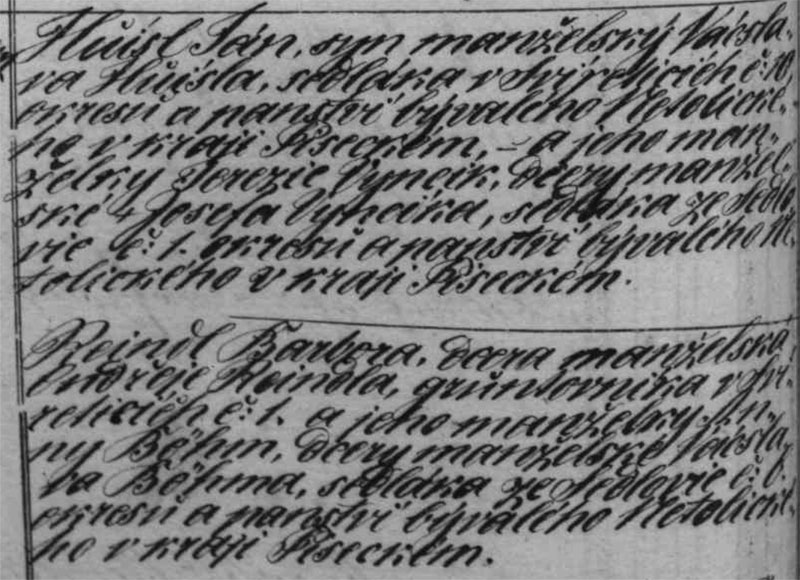 Hůisl Ján, syn manželský Vácsla-
va Hůisla, sedláka v Tvířeticích č: 10,
okresu a panství bývalého Netolické-
ho v kraji Píseckém, – a jeho man-
želky Terezie Vyncik, dcery manžel-
ské + Josefa Vyncika, sedláka ze Sedlo-
vic č: 1. okresu a panství bývalého Ne-
tolického v kraji Píseckém.
Reindl Barbora, dcera manželská
Ondřeje Reindla, gruntovníka v
řeticích č: 1. a jeho manželky An-
ny Böhm, dcery manželské Vácsla-
va Böhma, sedláka ze Sedlovic č: 6.
okresu a panství bývalého Netolické-
ho v kraji Píseckém.